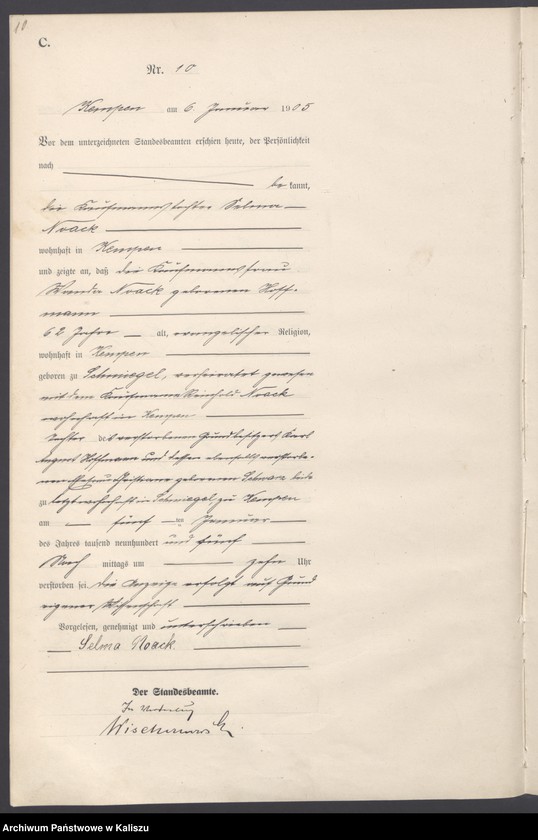 10
C.
Nr. 10
Kempen am 6. Januar 1905
Vor dem unterzeichneten Standesbeamten erschien heute, der Persönlichkeit
nach
be kannt,
die Kaufmannstochter Selma
Noack
wohnhaft in Kempen
und zeigte an, daß die Kaufmannsfrau
Wanda Noack geborenen Hoff-
mann
62 Jahre alt, evangelischer Religion,
wohnhaft in Kempen
geboren zu Schmiegel, verheiratet gewesen
mit dem Kaufmann Reinhold Noack
wohnhaft in Kempen
Tochter des verstorbenen Grundbesitzers Karl
August Hoffmann und dessen ebenfalls verstorbe-
nen Ehefrau Christiane geborenen beide
zuletzt wohnhaft in Schmiegel, zu Kempen
am fünf ten Januar
des Jahres tausend neunhundert und fünf
Nach mittags um zehn Uhr
verstorben sei. Die Anzeige erfolgt auf Grund
eigener Wissenschaft
Vorgelesen, genehmigt und unterschrieben
Selma Noack.
Der Standesbeamte.
In Vertretung
Archiwum Państwowe w Kaliszu